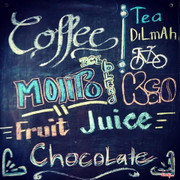 Coffee
Tea
DiLMAH
MOJITO
KEO
Fruit Juice
Chocolate